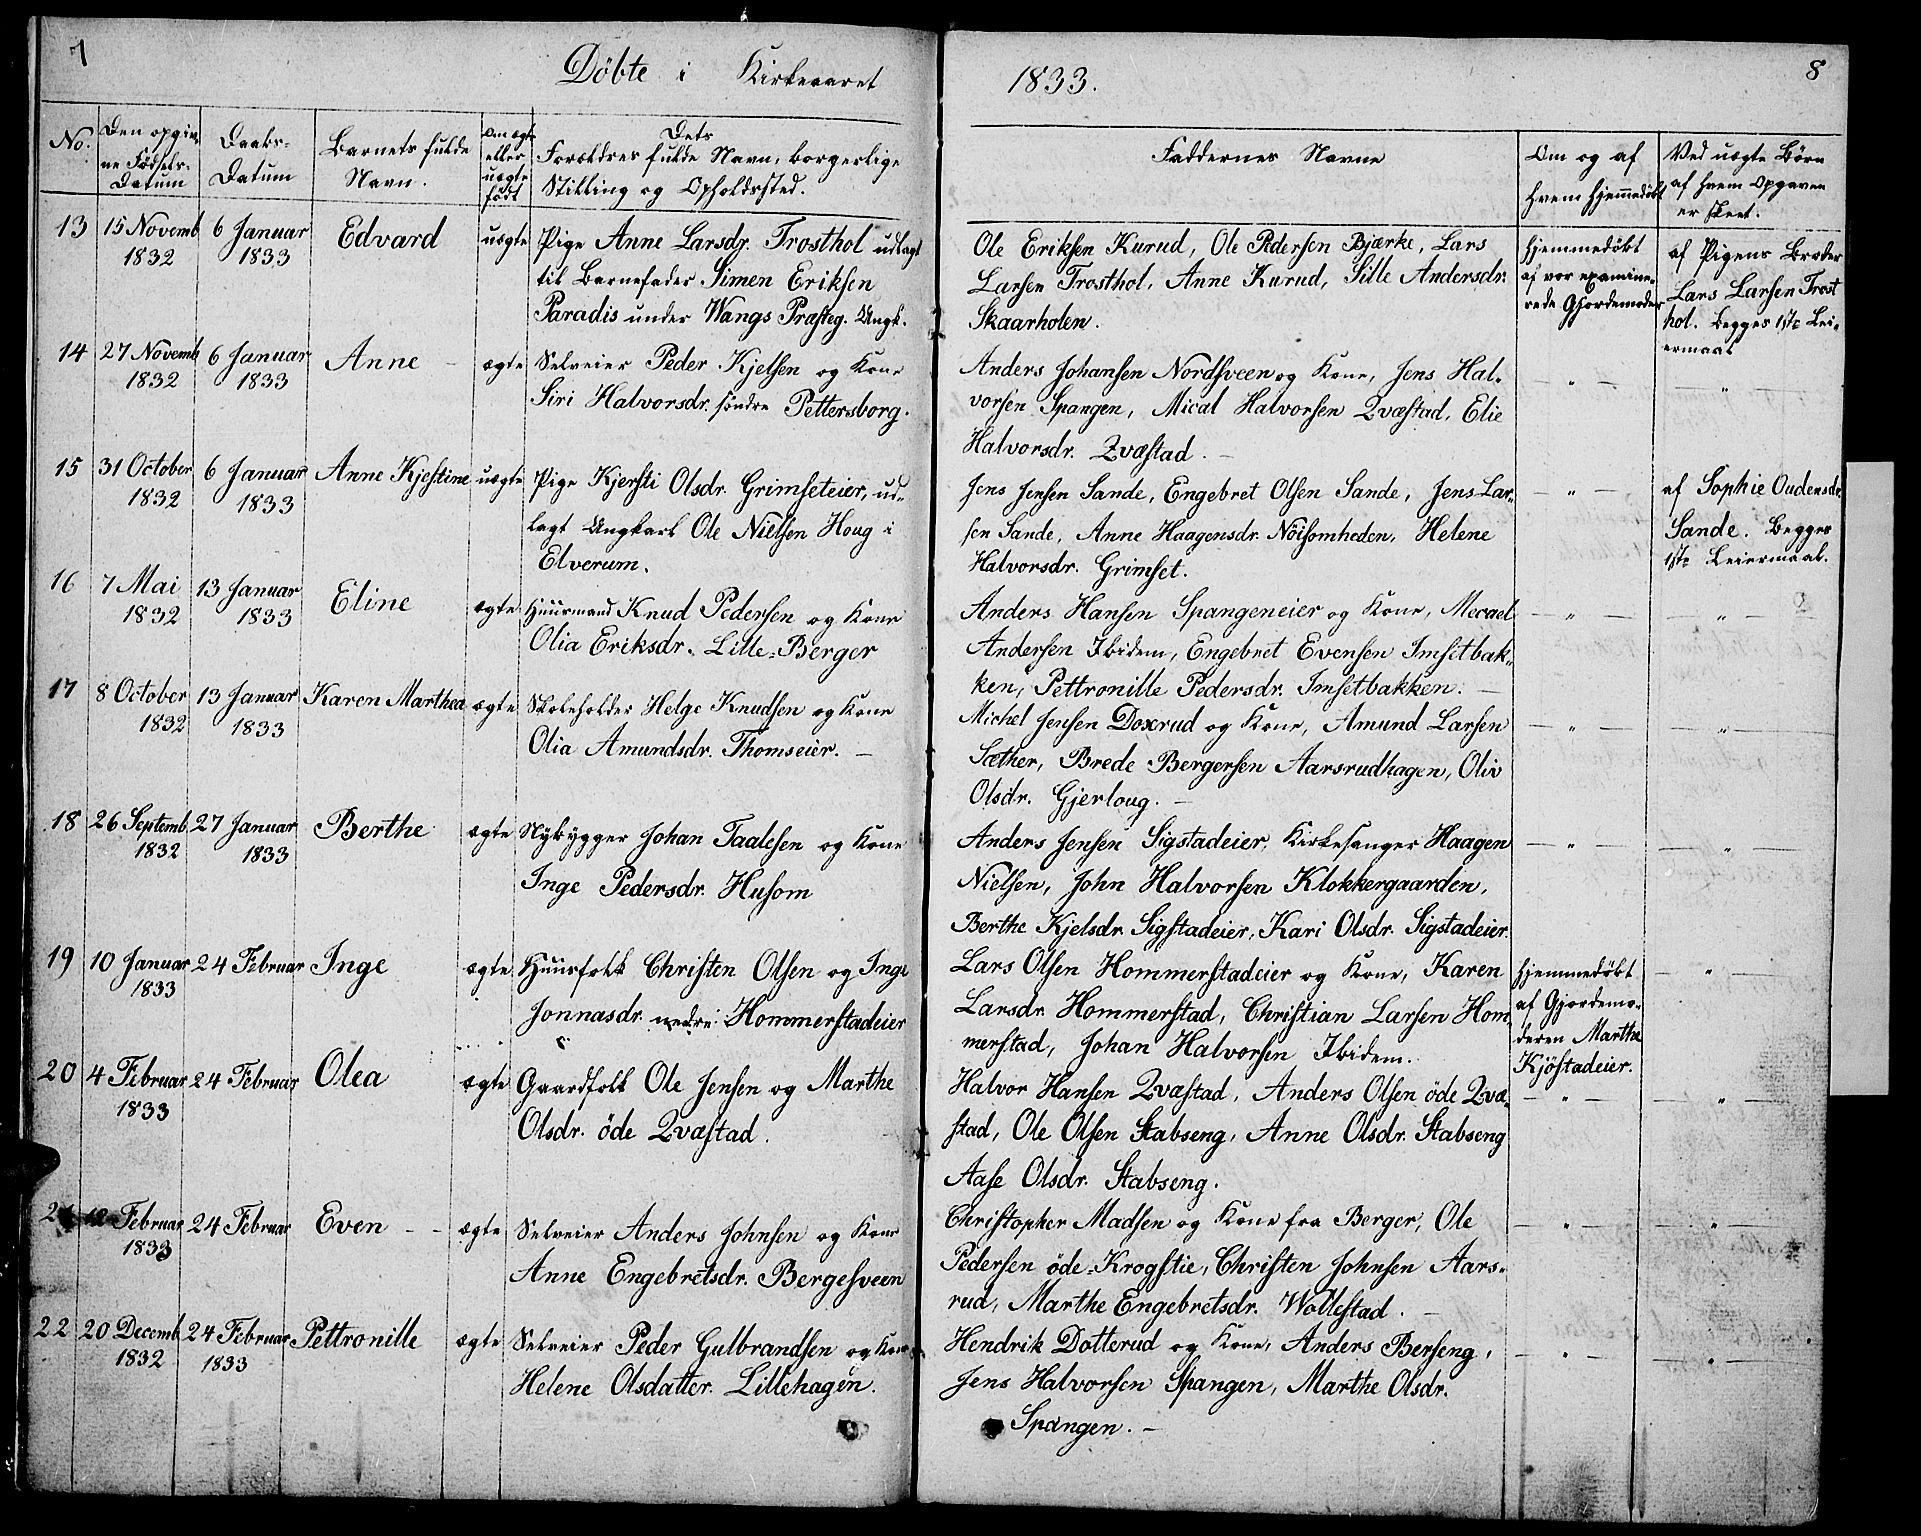 7
Döbte i Kirkeaaret
No.
Den opgiv-
ne Födsels-
Datum
Daabs-
Datum
Barnets fulde
Navn.
Om ægte
eller
uægte
födt
Dets
Forældres fulde Navn, borgerlige
Stilling og Opholdssted.
13 15 Novemb 6 Januar Edvard uægte Pige Anne Larsdr. Trosthol udlagt
1832 1833 til Barnefader Simen Eriksen
Paradis under Wangs Præsteg. Ungk.
14 27 Novemb 6 Januar Anne – ægte Selveier Peder Kjelsen og Kone
1832 1833 Siri Halvorsdr. söndre Pettersborg.
15 31 October 6 Januar Anne Kjestine uægte Pige Kjersti Olsdr. Grimseteier, ud-
1832 1833 lagt Ungkarl Ole Nielsen Houg i
Elverum.
16 7 Mai 13 Januar Eline ægte Huusmand Knud Pedersen og Kone
1832 1833 Olia Eriksdr. Lille-Berger
17 8 October 13 Januar Karen Marthea ægte Skoleholder Helge Knudsen og Kone
1832 1833 Olia Amundsdr. Thomseier. –
18 26 Septemb. 27 Januar Berthe ægte Nybygger Johan Taalesen og Kone
1832 1833 Inge Pedersdr. Husom
19 10 Januar 24 Februar Inge ægte Huusfolk Christen Olsen og Inge
1833 Jonnasdr. nedre Hommerstadeier
20 4 Februar 24 Februar Olea ægte Gaardfolk Ole Jensen og Marthe
1833 Olsdr. öde Qvæstad.
21 12 Februar 24 Februar Even – ægte Selveier Anders Johnsen og Kone
1833 Anne Engebretsdr. Bergesveen
22 20 Decemb. 24 Februar Pettronille ægte Selveier Peder Gulbrandsen og Kone
1832 1833 Helene Olsdatter. Lillehagen.
8
1833.
Faddernes Navne
Om og af
hvem hjemmedöbt
Ved uægte Börn
af hvem Opgaven
er skeet.
Ole Eriksen Kurud, Ole Pedersen Bjærke, Lars
Larsen Trosthol, Anne Kurud, Sille Andersdr.
Skaarholen.
hjemmedöbt
af vor examine-
rede Gjordemoder
af Pigens Broder
Lars Larsen Trost
hol. Begges 1ste Lei-
ermaal
Anders Johansen Nordsveen og Kone, Jens Hal-
vorsen Spangen, Mical Halvorsen Qvæstad, Elie
Halvorsdr. Qvæstad. –
– " – – " –
Jens Jensen Sande, Engebret Olsen Sande, Jens Lar-
sen Sande, Anne Haagensdr. Nöisomheden, Helene
Halvorsdr. Grimset.
– " –
af Sophie Oudensdr.
Sande. Begges
1ste Leiermaal.
Anders Hansen Spangeneier og Kone, Mecael
Andersen Ibidem, Engebret Evensen Imsetbak-
ken, Pettronille Pedersdr. Imsetbakken. –
– " – – " –
Michel Jensen Doxrud og Kone, Amund Larsen
Sæther, Brede Bergersen Aarsrudhagen, Oliv
Olsdr. Gjerloug. –
– " – – " –
Anders Jensen Sigstadeier, Kirkesanger Haagen
Nielsen, John Halvorsen Klokkergaarden,
Berthe Kjelsdr. Sigstadeier, Kari Olsdr. Sigstadeier.
– " – – " –
Lars Olsen Hommerstadeier og Kone, Karen
Larsdr. Hommerstad, Christian Larsen Hom-
merstad, Johan Halvorsen Ibidem.
hjemmedöbt
af Gjordemo-
deren Marthe
Kjöstadeier.
– " –
Halvor Hansen Qvæstad, Anders Olsen öde Qvæ-
stad, Ole Olsen Stabseng, Anne Olsdr. Stabseng
Aase Olsdr. Stabseng.
– " – – " –
Christopher Madsen og Kone fra Berger, Ole
Pedersen öde-Krogstie, Christen Johnsen Aars-
rud, Marthe Engebretsdr. Wollestad. –
– " – – " –
Hendrik Dotterud og Kone, Anders Berseng,
Jens Halvorsen Spangen, Marthe Olsdr.
Spangen. –
– " – – " –